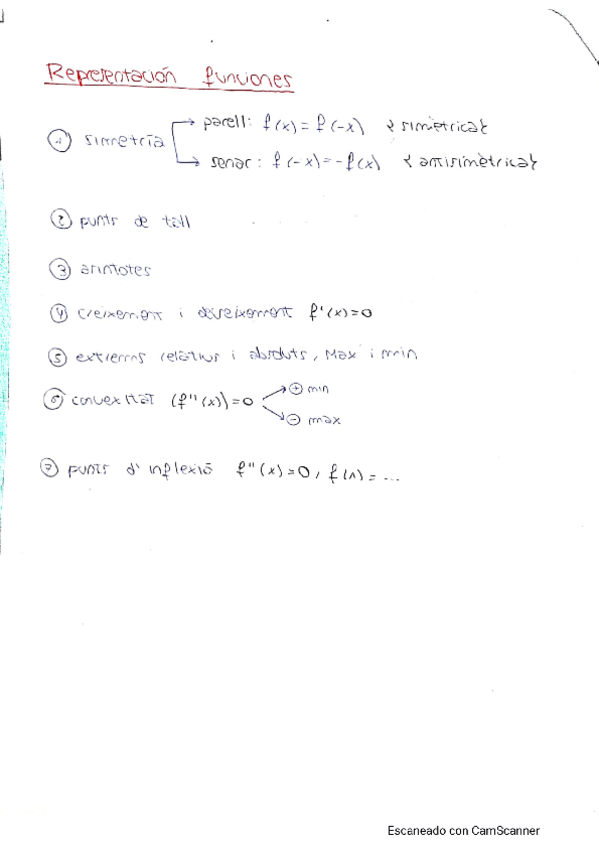 Representación funciones
① simetría → parell: f(x) = f(-x) {simètrica}
→ senar: f(-x) = -f(x) {antisimètrica}
② punts de tall
③ asimtotes
④ creixement i decreixement f'(x)=0
⑤ extrems relatius i absoluts, Max i min
⑥ convexitat (f''(x))=0 → ⊕ min
→ ⊖ max
⑦ punts d'inflexió f''(x)=0, f(1)=...
Escaneado con CamScanner